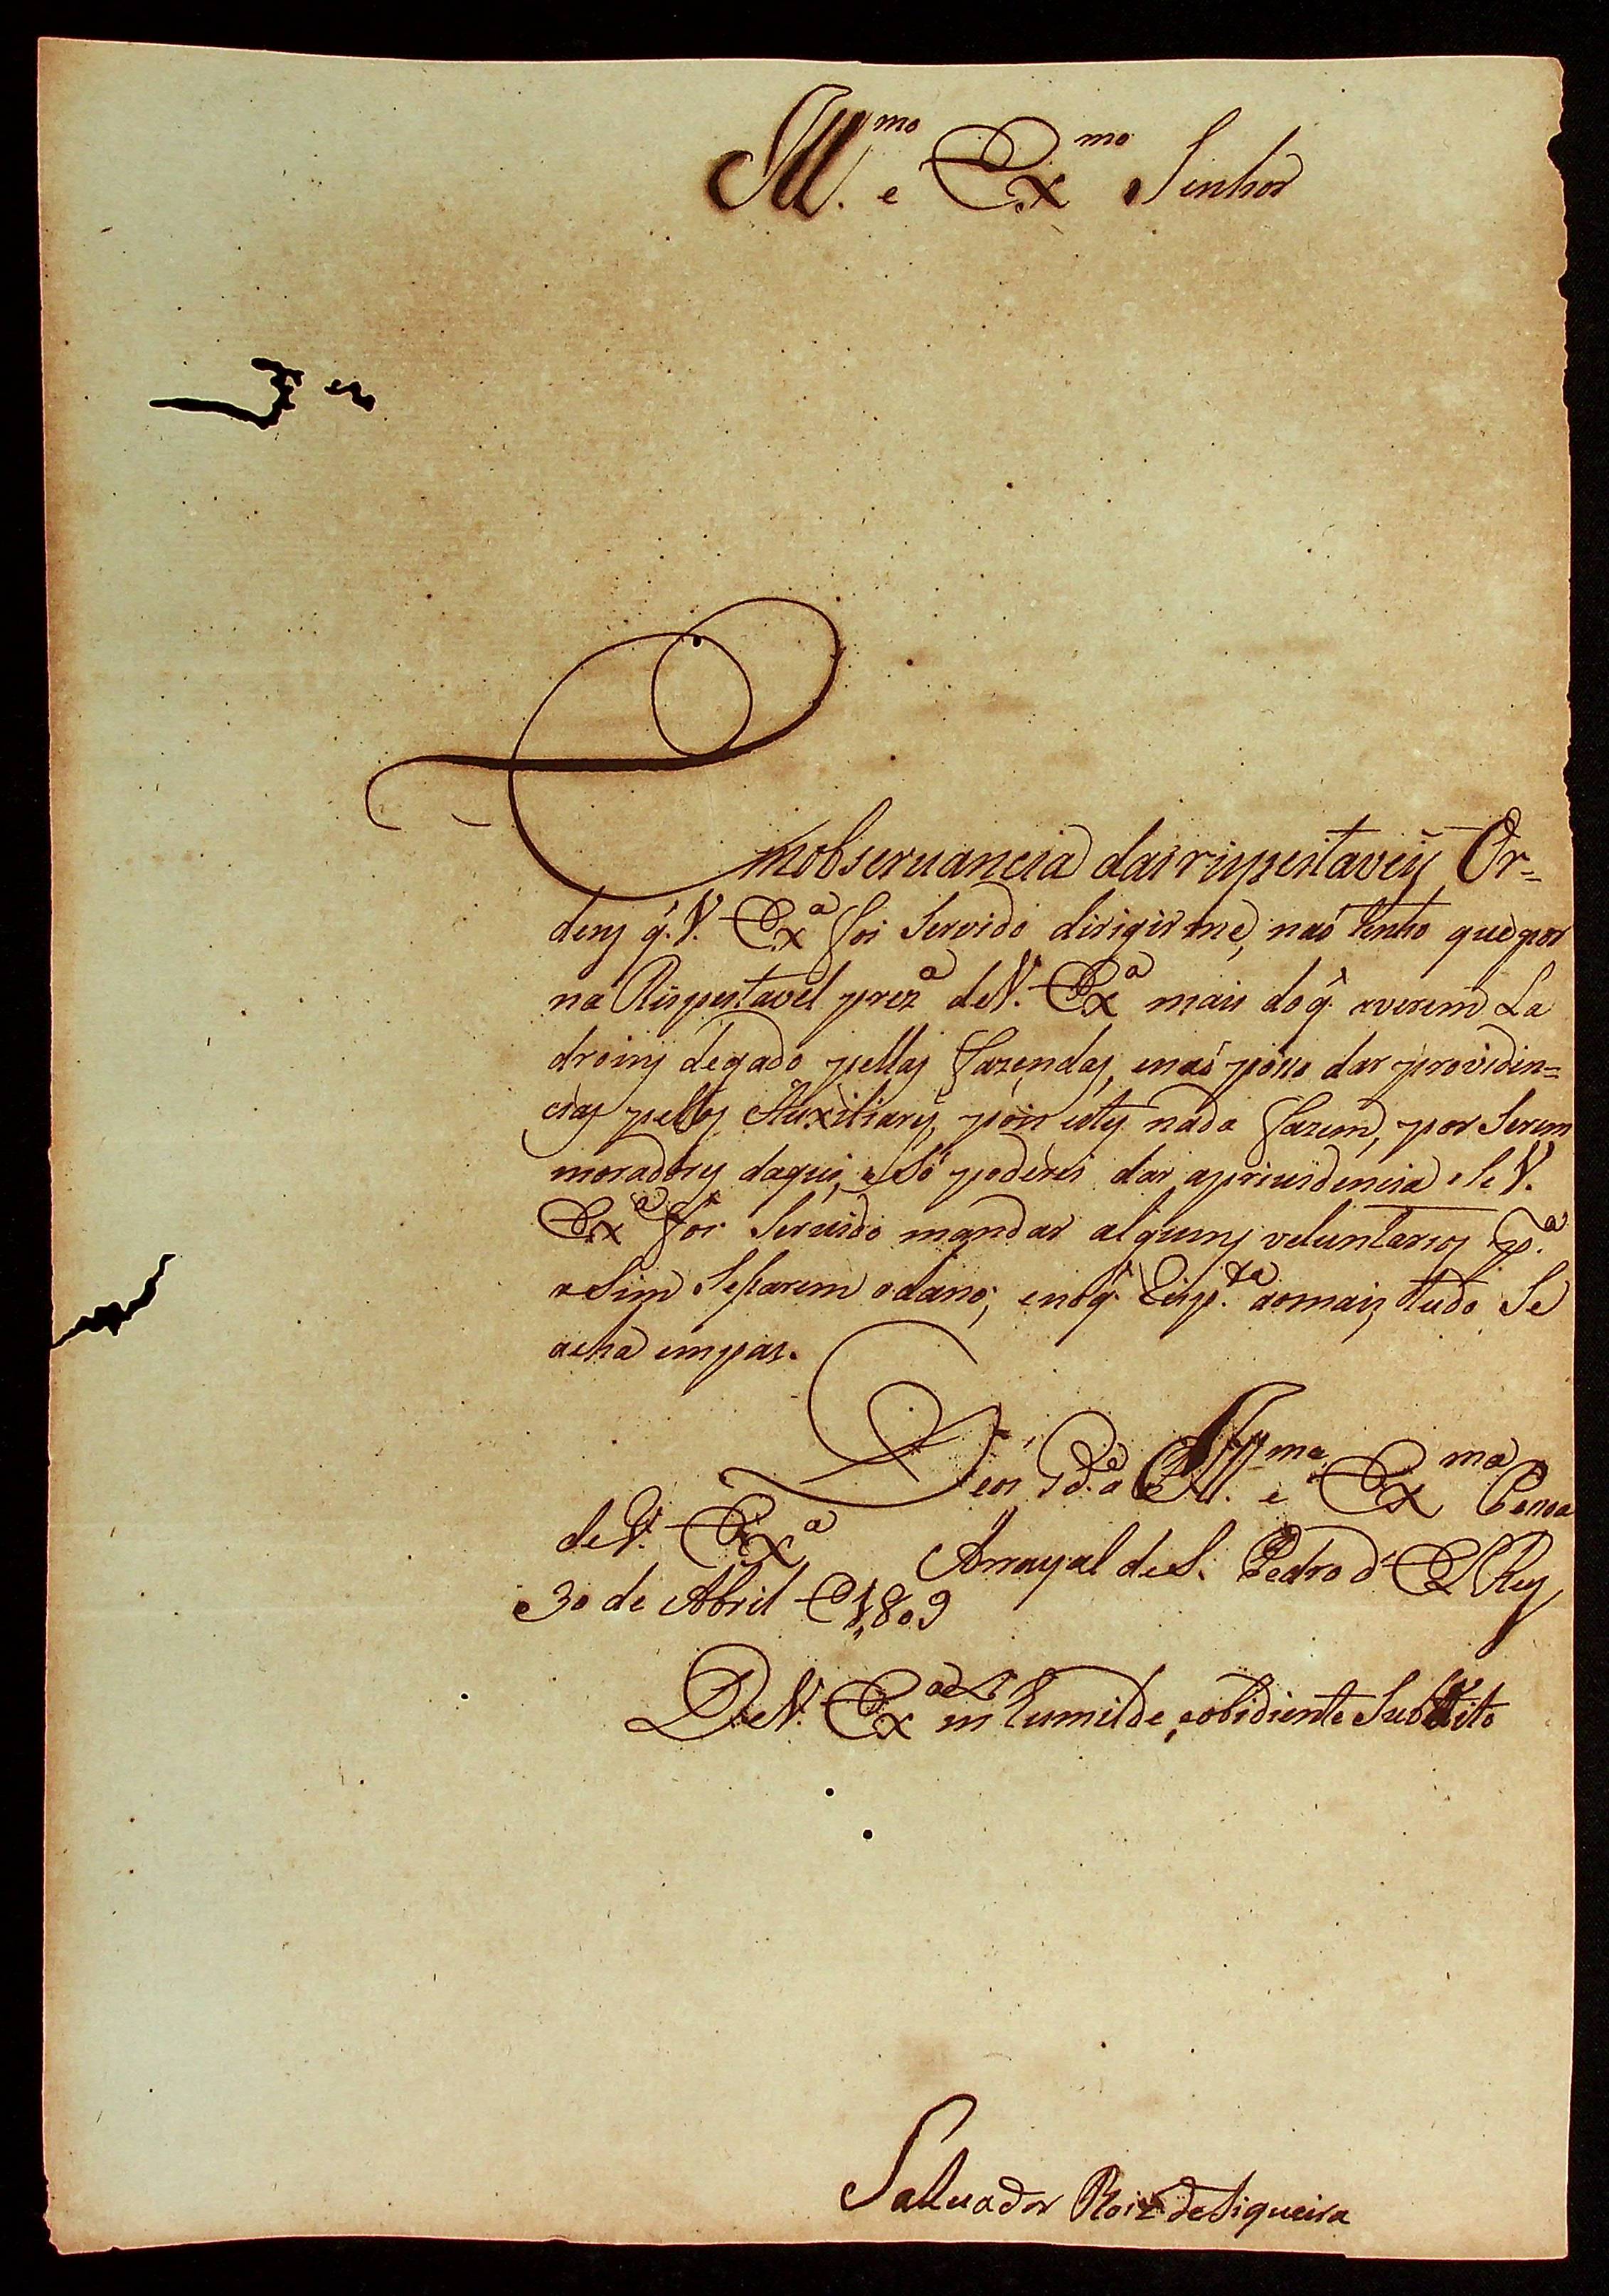 Ill.mo e Ex.mo Senhor
Emobseruancia das rispeitaveis Or=
dens q̃. V. Ex.a foi Servido dirigirme, naõ tenho que por
na Rispeitavel prez.a de V. Ex.a mais do q̃ averem La
droins de gado pellas fazendas, e naõ posso dar providen=
cias pellos Auxiliares, pois estes nada fazem, por Serem
moradores daqui, e Só poderei dar a priuidencia Se V.
Ex.a for Seruido mandar alguns veluntarios p.a
aSim Separem o dano; e no q̃ Risp.ta aomais, tudo Se
acha empas.
Deos G.de a Ill.ma e Ex.ma Penoa
de V. Ex.a Arrayal de S. Pedro d' El Rey
30 de Abril 1809
De V. Ex.a m humilde, e obidiente Subdito
Saluador Roiz de Siqueira